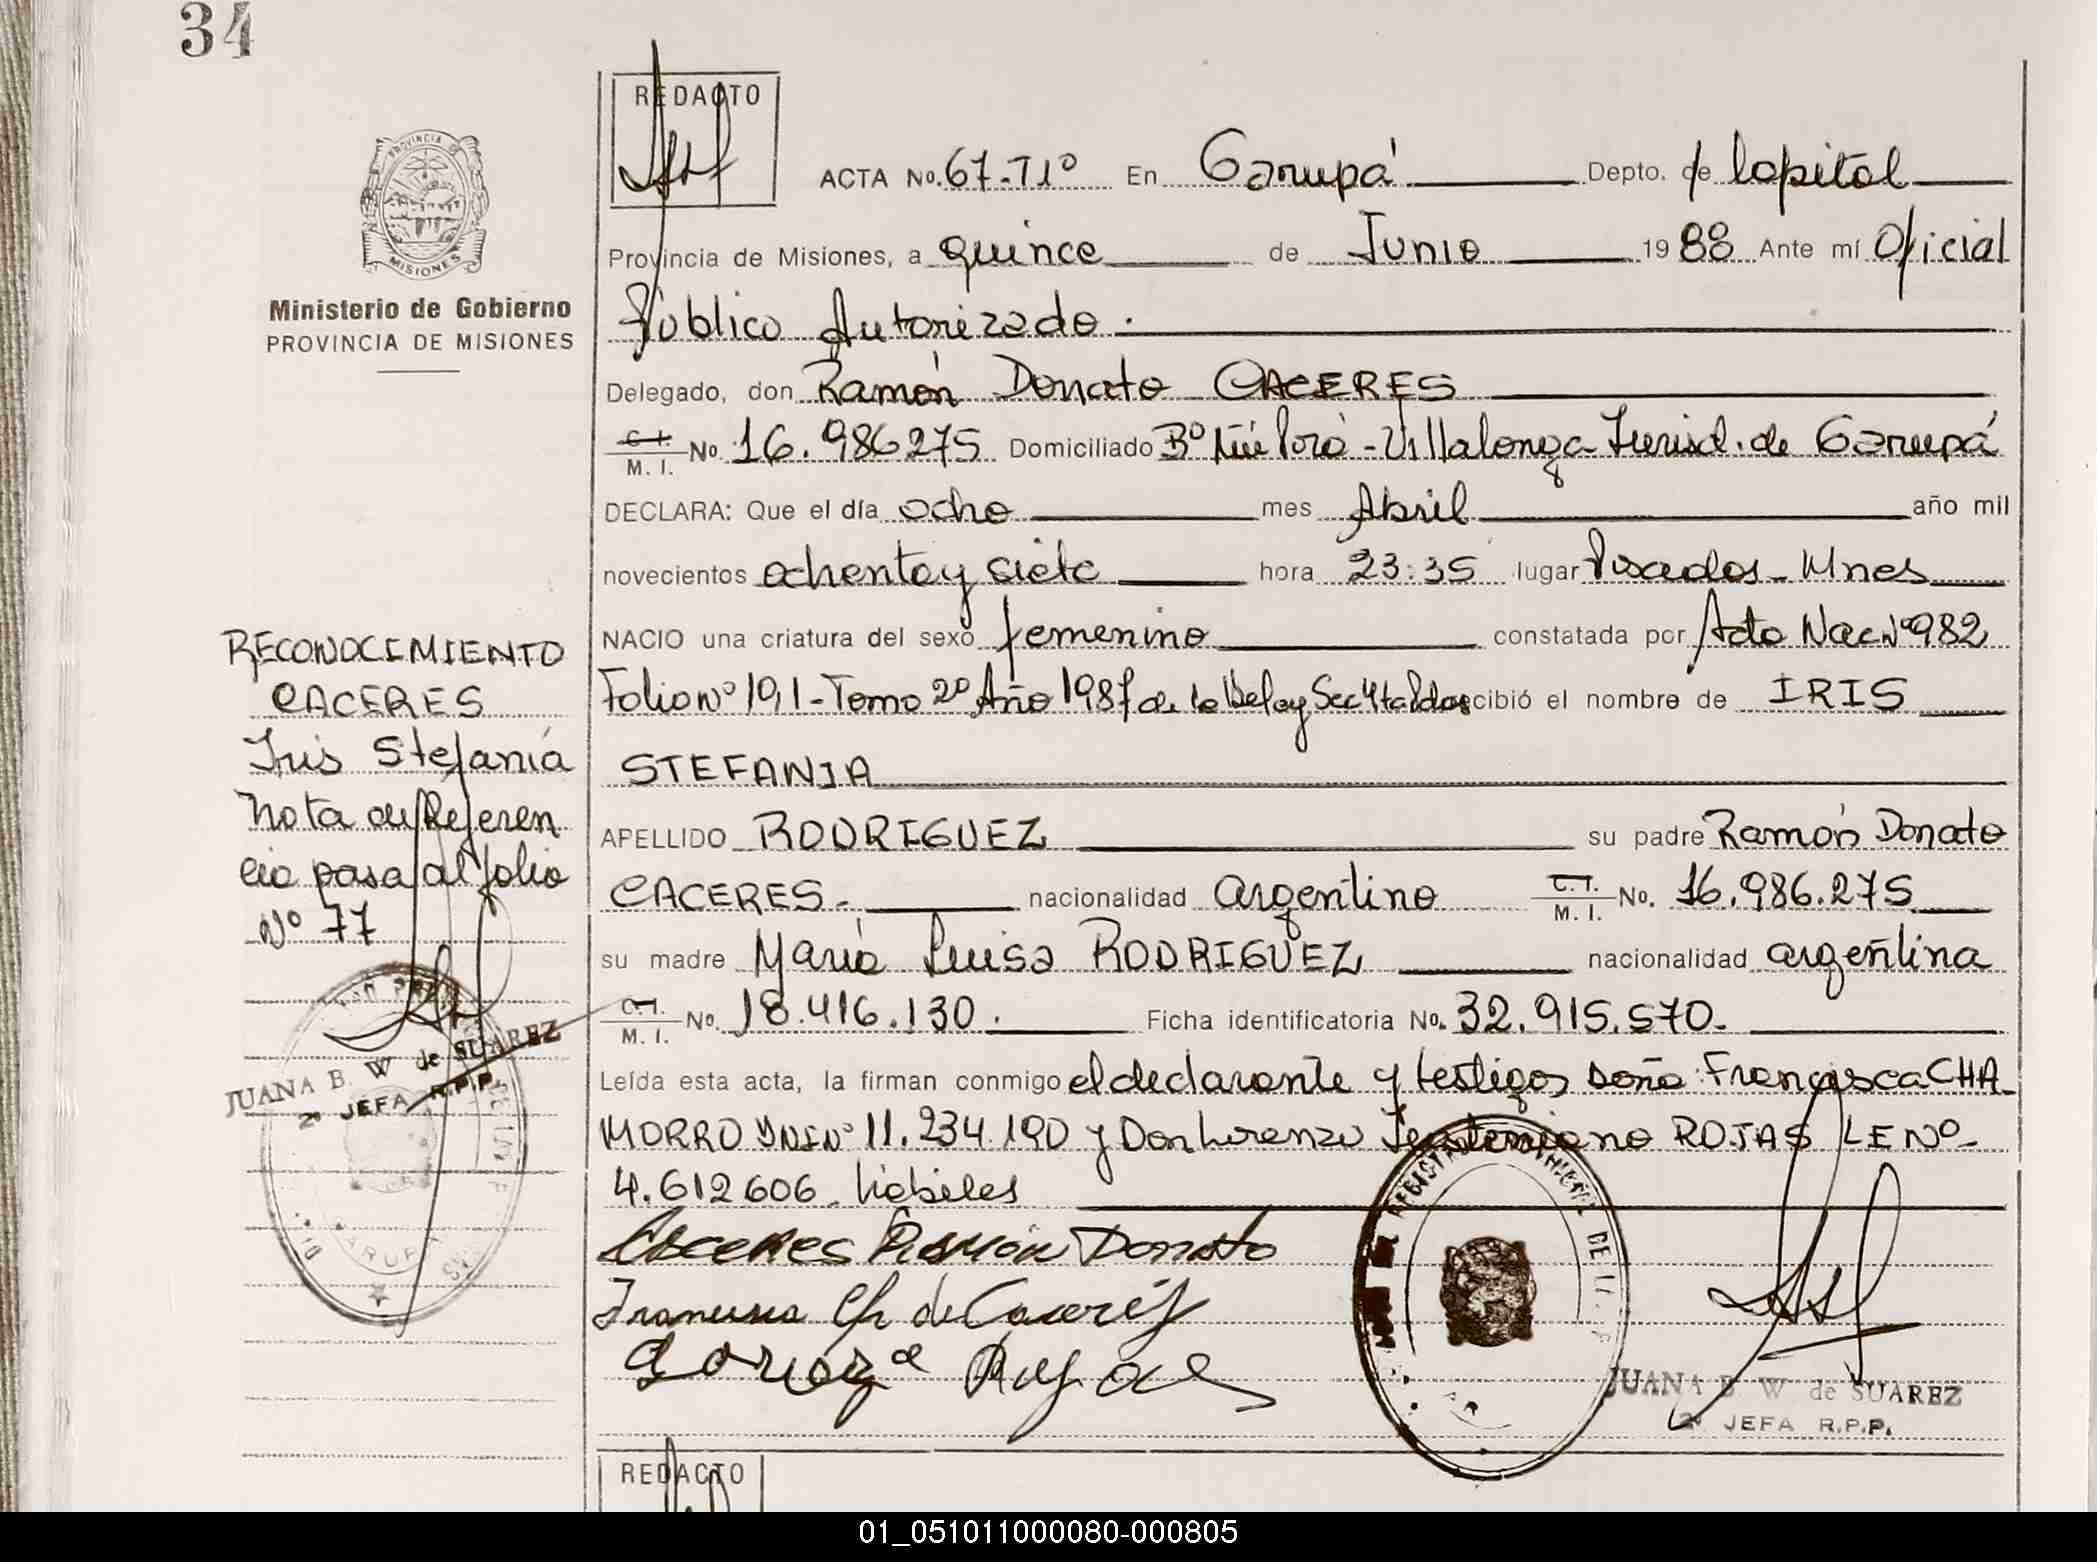 34
REDACTO
ACTA No. 67-T1º En Garupá Depto. de Capital
Provincia de Misiones, a quince de Junio 1988 Ante mí Oficial
Público Autorizado.
Ministerio de Gobierno
PROVINCIA DE MISIONES
Delegado, don Ramón Donato CACERES
C.I. M. I. No. 16.986275 Domiciliado Bº Porá - Villalonga Jurisd. de Garupá
DECLARA: Que el día ocho mes Abril año mil
novecientos ochenta y siete hora 23:35 lugar Posadas - Mnes
NACIO una criatura del sexo femenino constatada por Acta Nac Nº 982
Folio Nº 191 - Tomo 2º Año 1987 de la Deleg Sec 4ta Pdas recibió el nombre de IRIS
STEFANIA
APELLIDO RODRIGUEZ su padre Ramón Donato
CACERES.- nacionalidad argentino C.I. M. I. No. 16.986.275
su madre María Luisa RODRIGUEZ nacionalidad argentina
C.I. M. I. No. 18.416.130. Ficha identificatoria No. 32.915.570.
Leída esta acta, la firman conmigo el declarante y testigos Doña: Francisca CHA
MORRO DNI Nº 11.234.190 y Don Lorenzo ROJAS LE Nº-
4.612606. hábiles
Caceres Ramón Donato
Francisca Ch de Caceres
Rojas
JUANA B. W. de SUAREZ
2ª JEFA R.P.P.
RECONOCIMIENTO
CACERES
Iris Stefanía
Nota de Referen
cia pasa al folio
Nº 77
JUANA B. W de SUAREZ
2ª JEFA R.P.P.
REDACTO
01_051011000080-000805